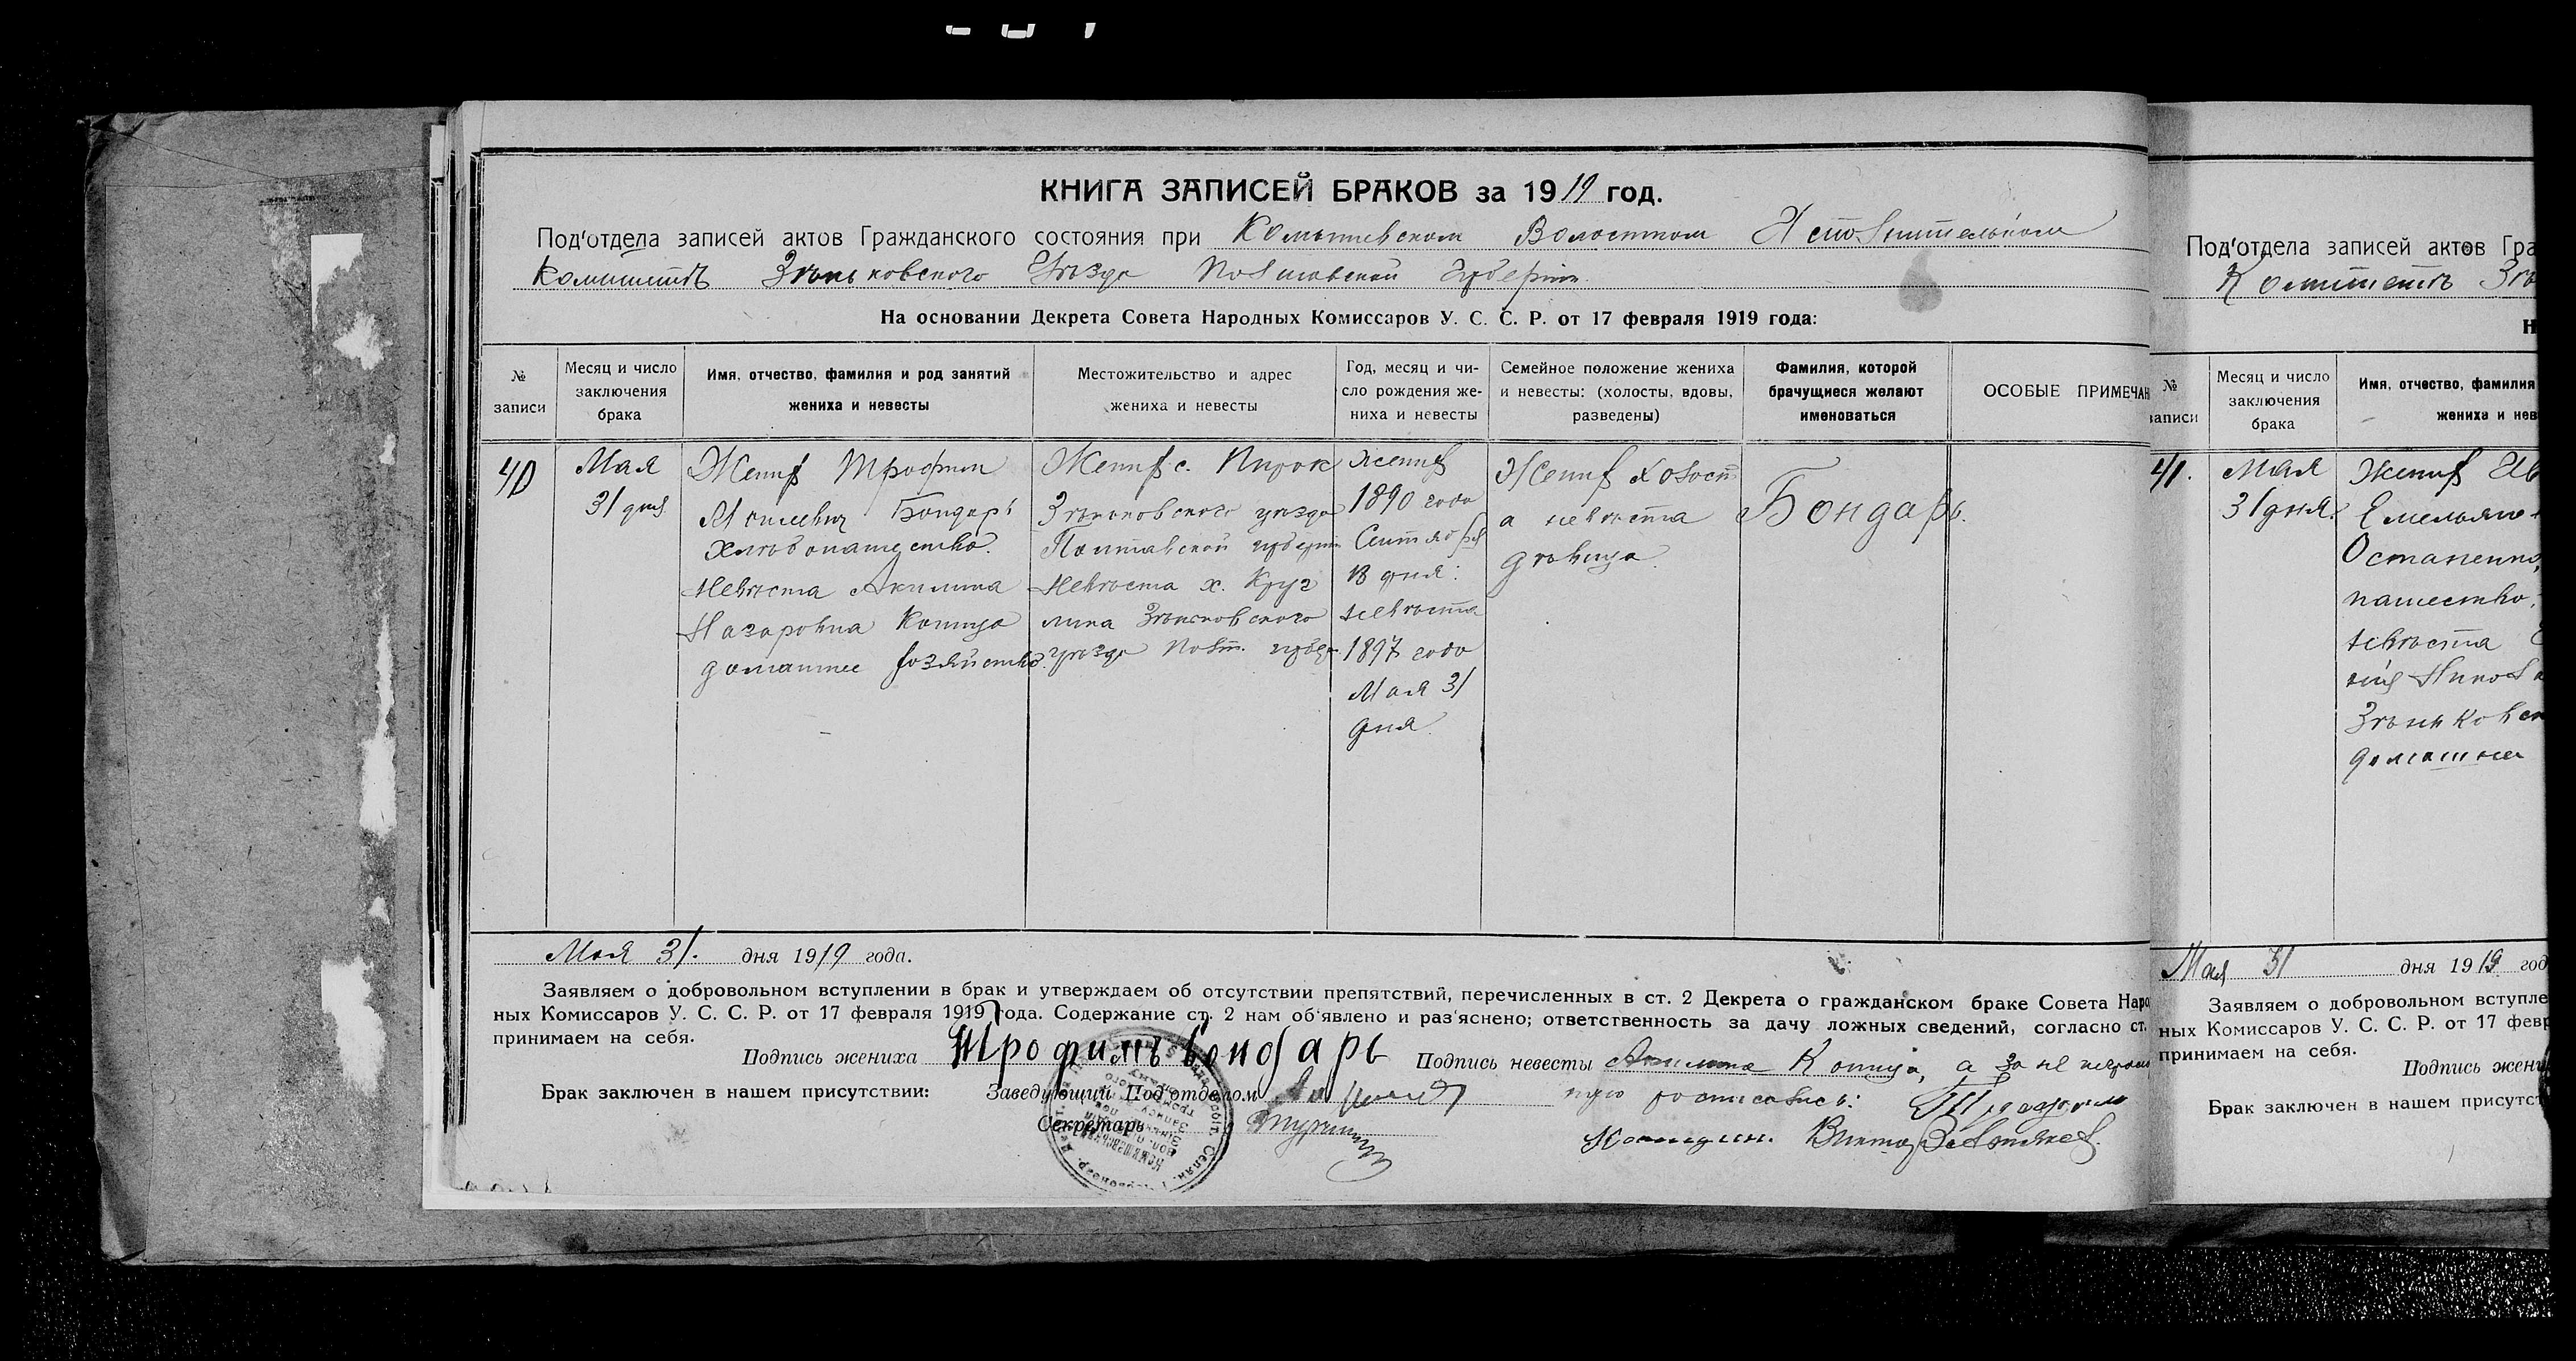 КНИГА ЗАПИСЕЙ БРАКОВ за 1919 год.
Под'отдела записей актов Гражданского состояния при Комышевском Волостном Исполнительном
Комитетѣ Зѣньковского Уезда Полтавской Губернии.
На основании Декрета Совета Народных Комиссаров У. С. С. Р. от 17 февраля 1919 года:
№ записи
Месяц и число заключения брака
Имя, отчество, фамилия и род занятий жениха и невесты
Местожительство и адрес жениха и невесты
Год, месяц и чи-
сло рождения же-
ниха и невесты
Семейное положение жениха
и невесты: (холосты, вдовы,
разведены)
Фамилия, которой
брачущиеся желают
именоваться
ОСОБЫЕ ПРИМЕЧАН
40
Мая
31 дня
Жених Трофим
Бондарь
хлѣбопашество.
Невѣста Акилина
Назаровна Копица
домашнее хозяйство.
Жених с. Пирок
Зѣньковского уѣзда
Полтавской губерн
Невѣста х. Круг
лика Зѣньковского
уѣзда Полт. губер.
жених
1890 года
Сентября
18 дня.
невѣста
1897 года
Мая 31
дня.
Жених холост
а невѣста
дѣвица.
Бондарь.
Мая 31. дня 1919 года.
Заявляем о добровольном вступлении в брак и утверждаем об отсутствии препятствий, перечисленных в ст. 2 Декрета о гражданском браке Совета Наро
ных Комиссаров У. С. С. Р. от 17 февраля 1919 года. Содержание ст. 2 нам об'явлено и раз'яснено; ответственность за дачу ложных сведений, согласно ст.
принимаем на себя.
Подпись жениха Трофимъ Бондарь Подпись невесты Акилина Копица, а за не
Брак заключен в нашем присутствии: Заведующий Под'отделом
Секретарь
Под'отдела записей актов Гра
Комитетѣ Зѣ
Н
№ записи
Месяц и число
заключения
брака
Имя, отчество, фамилия
жениха и нев
41.
Мая
31 дня.
Жених
Емельяно
Остапенко,
пашество.
невѣста
Зѣньковск
домашнее
Мая 31 дня 1919 год
Заявляем о добровольном вступле
ных Комиссаров У. С. С. Р. от 17 февр
принимаем на себя.
Подпись жени
Брак заключен в нашем присутст